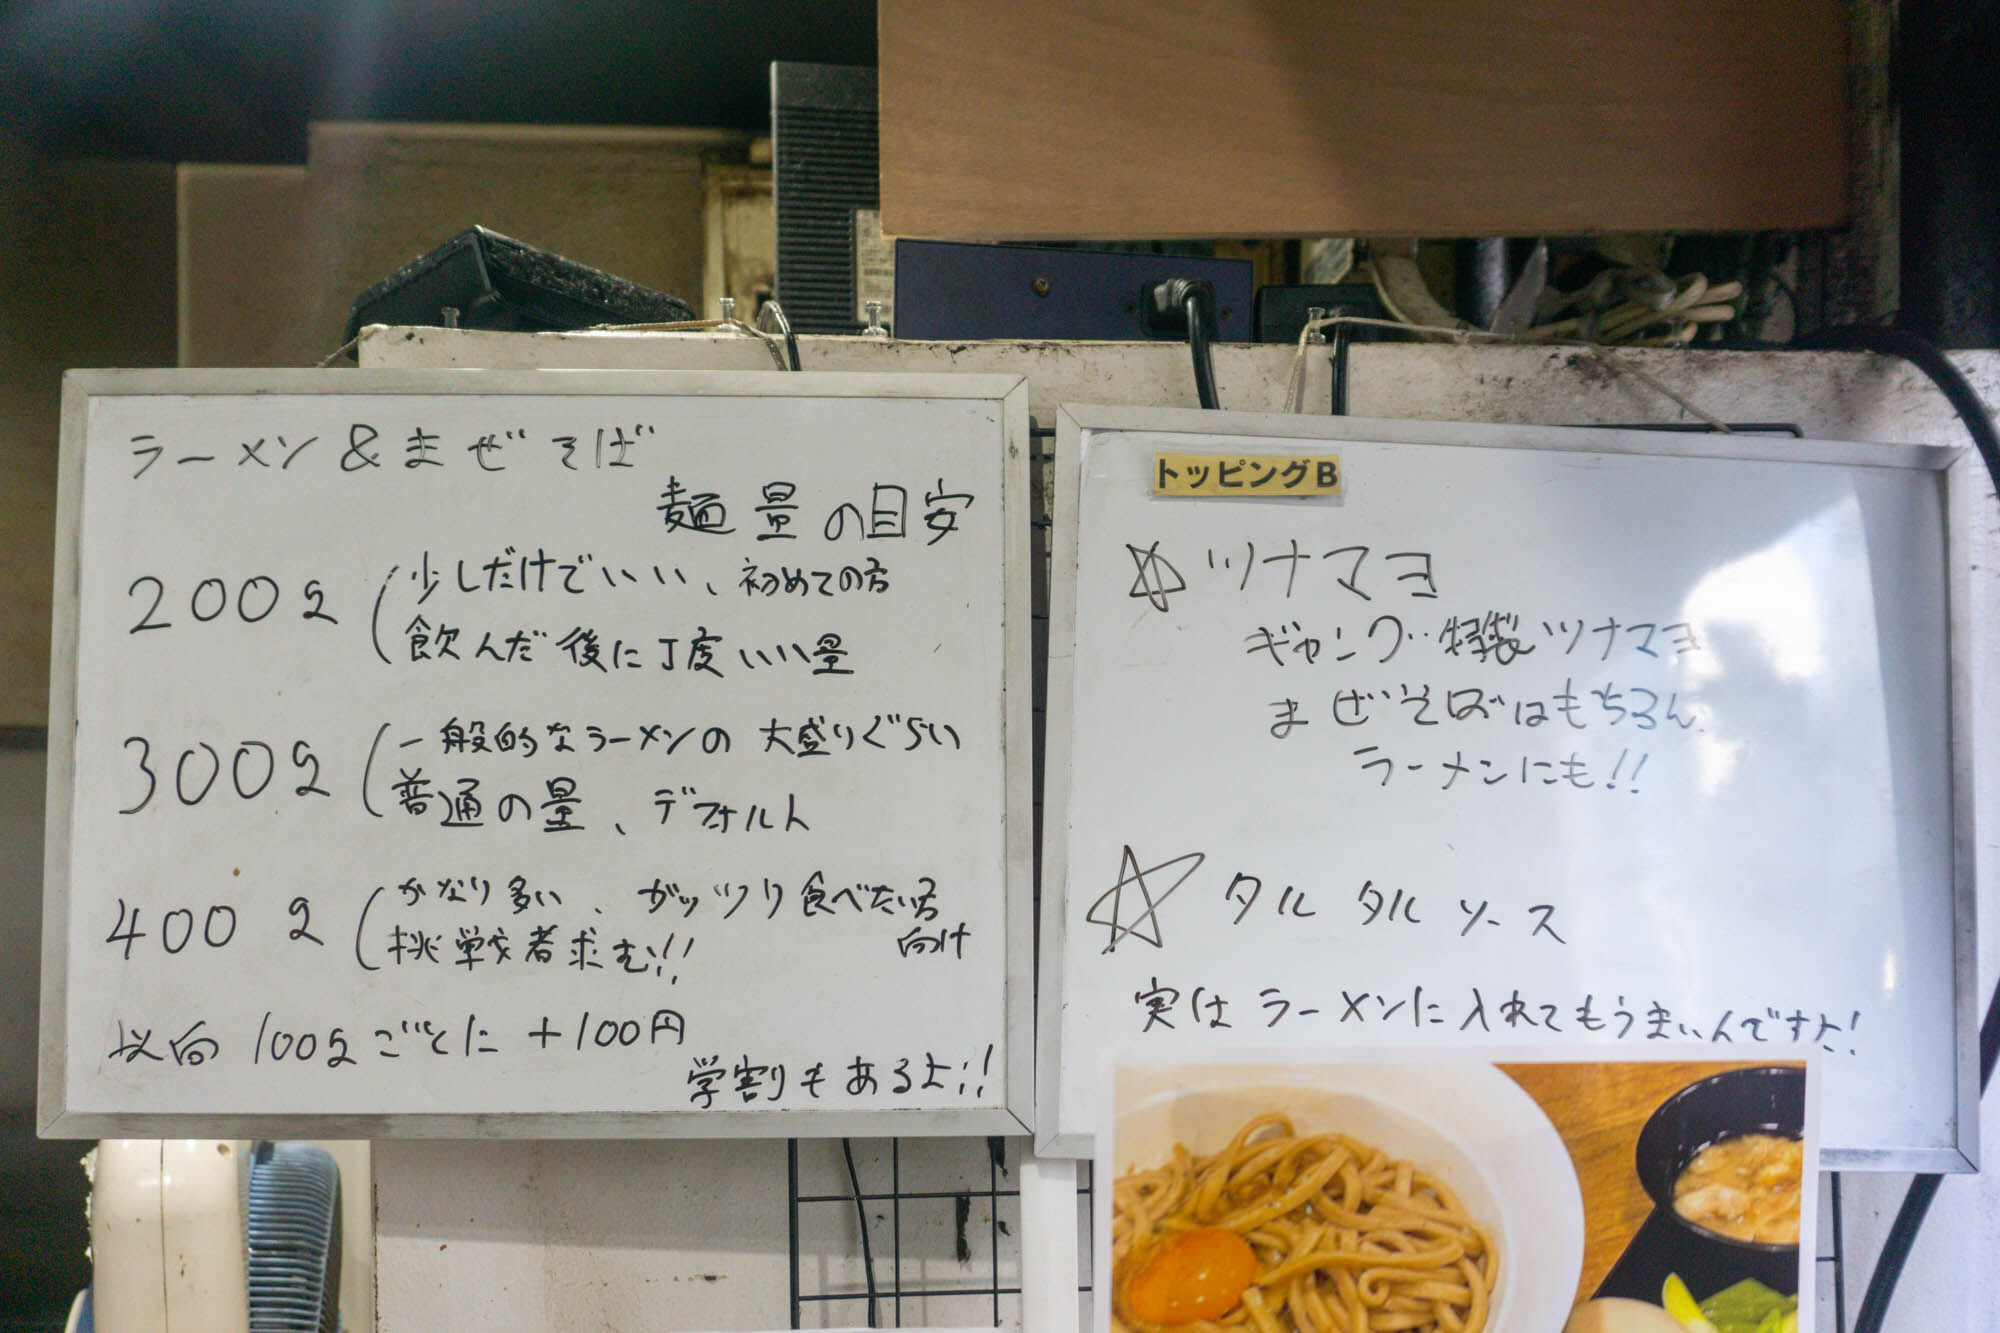 ラーメン&まぜそば
麺量の目安
200g(少しだけでいい、初めての方
飲んだ後に丁度いい量
300g(一般的なラーメンの大盛りぐらい
普通の量、デフォルト
400g(かなり多い、ガッツリ食べたい方
向け
挑戦者求む!!
以向100gごとに+100円
学割もあるよ!!
トッピングB
☆ツナマヨ
ギャング特製ツナマヨ
まぜそばはもちろん
ラーメンにも!!
☆タルタルソース
実はラーメンに入れてもうまいんですよ!